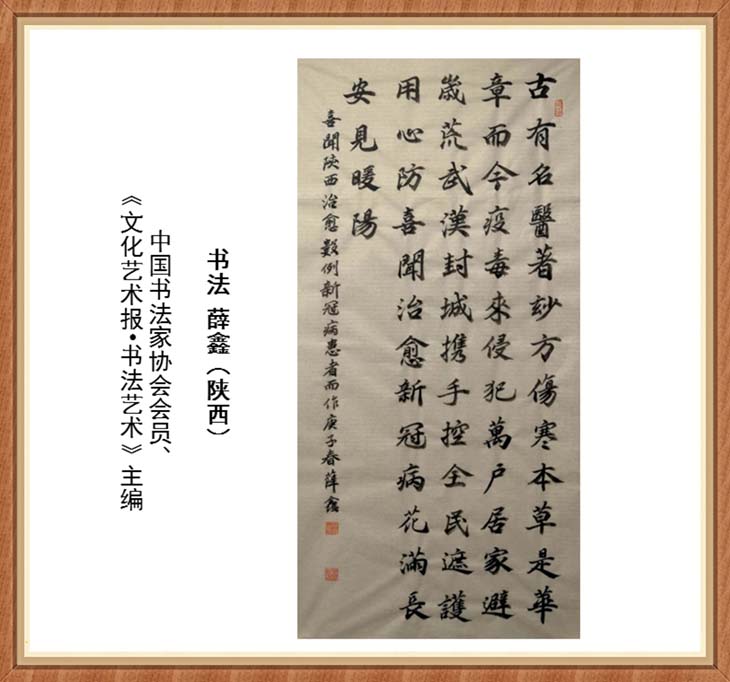 古有名醫著玅方傷寒本草是華
章而今疫毒來侵犯萬戶居家避
嵗荒武漢封城携手控全民遮護
用心防喜聞治愈新冠病花滿長
安見暖陽
喜聞陝西治愈數例新冠病患者而作庚子春薛鑫
书法 薛鑫（陕西）
中国书法家协会会员、
《文化艺术报•书法艺术》主编